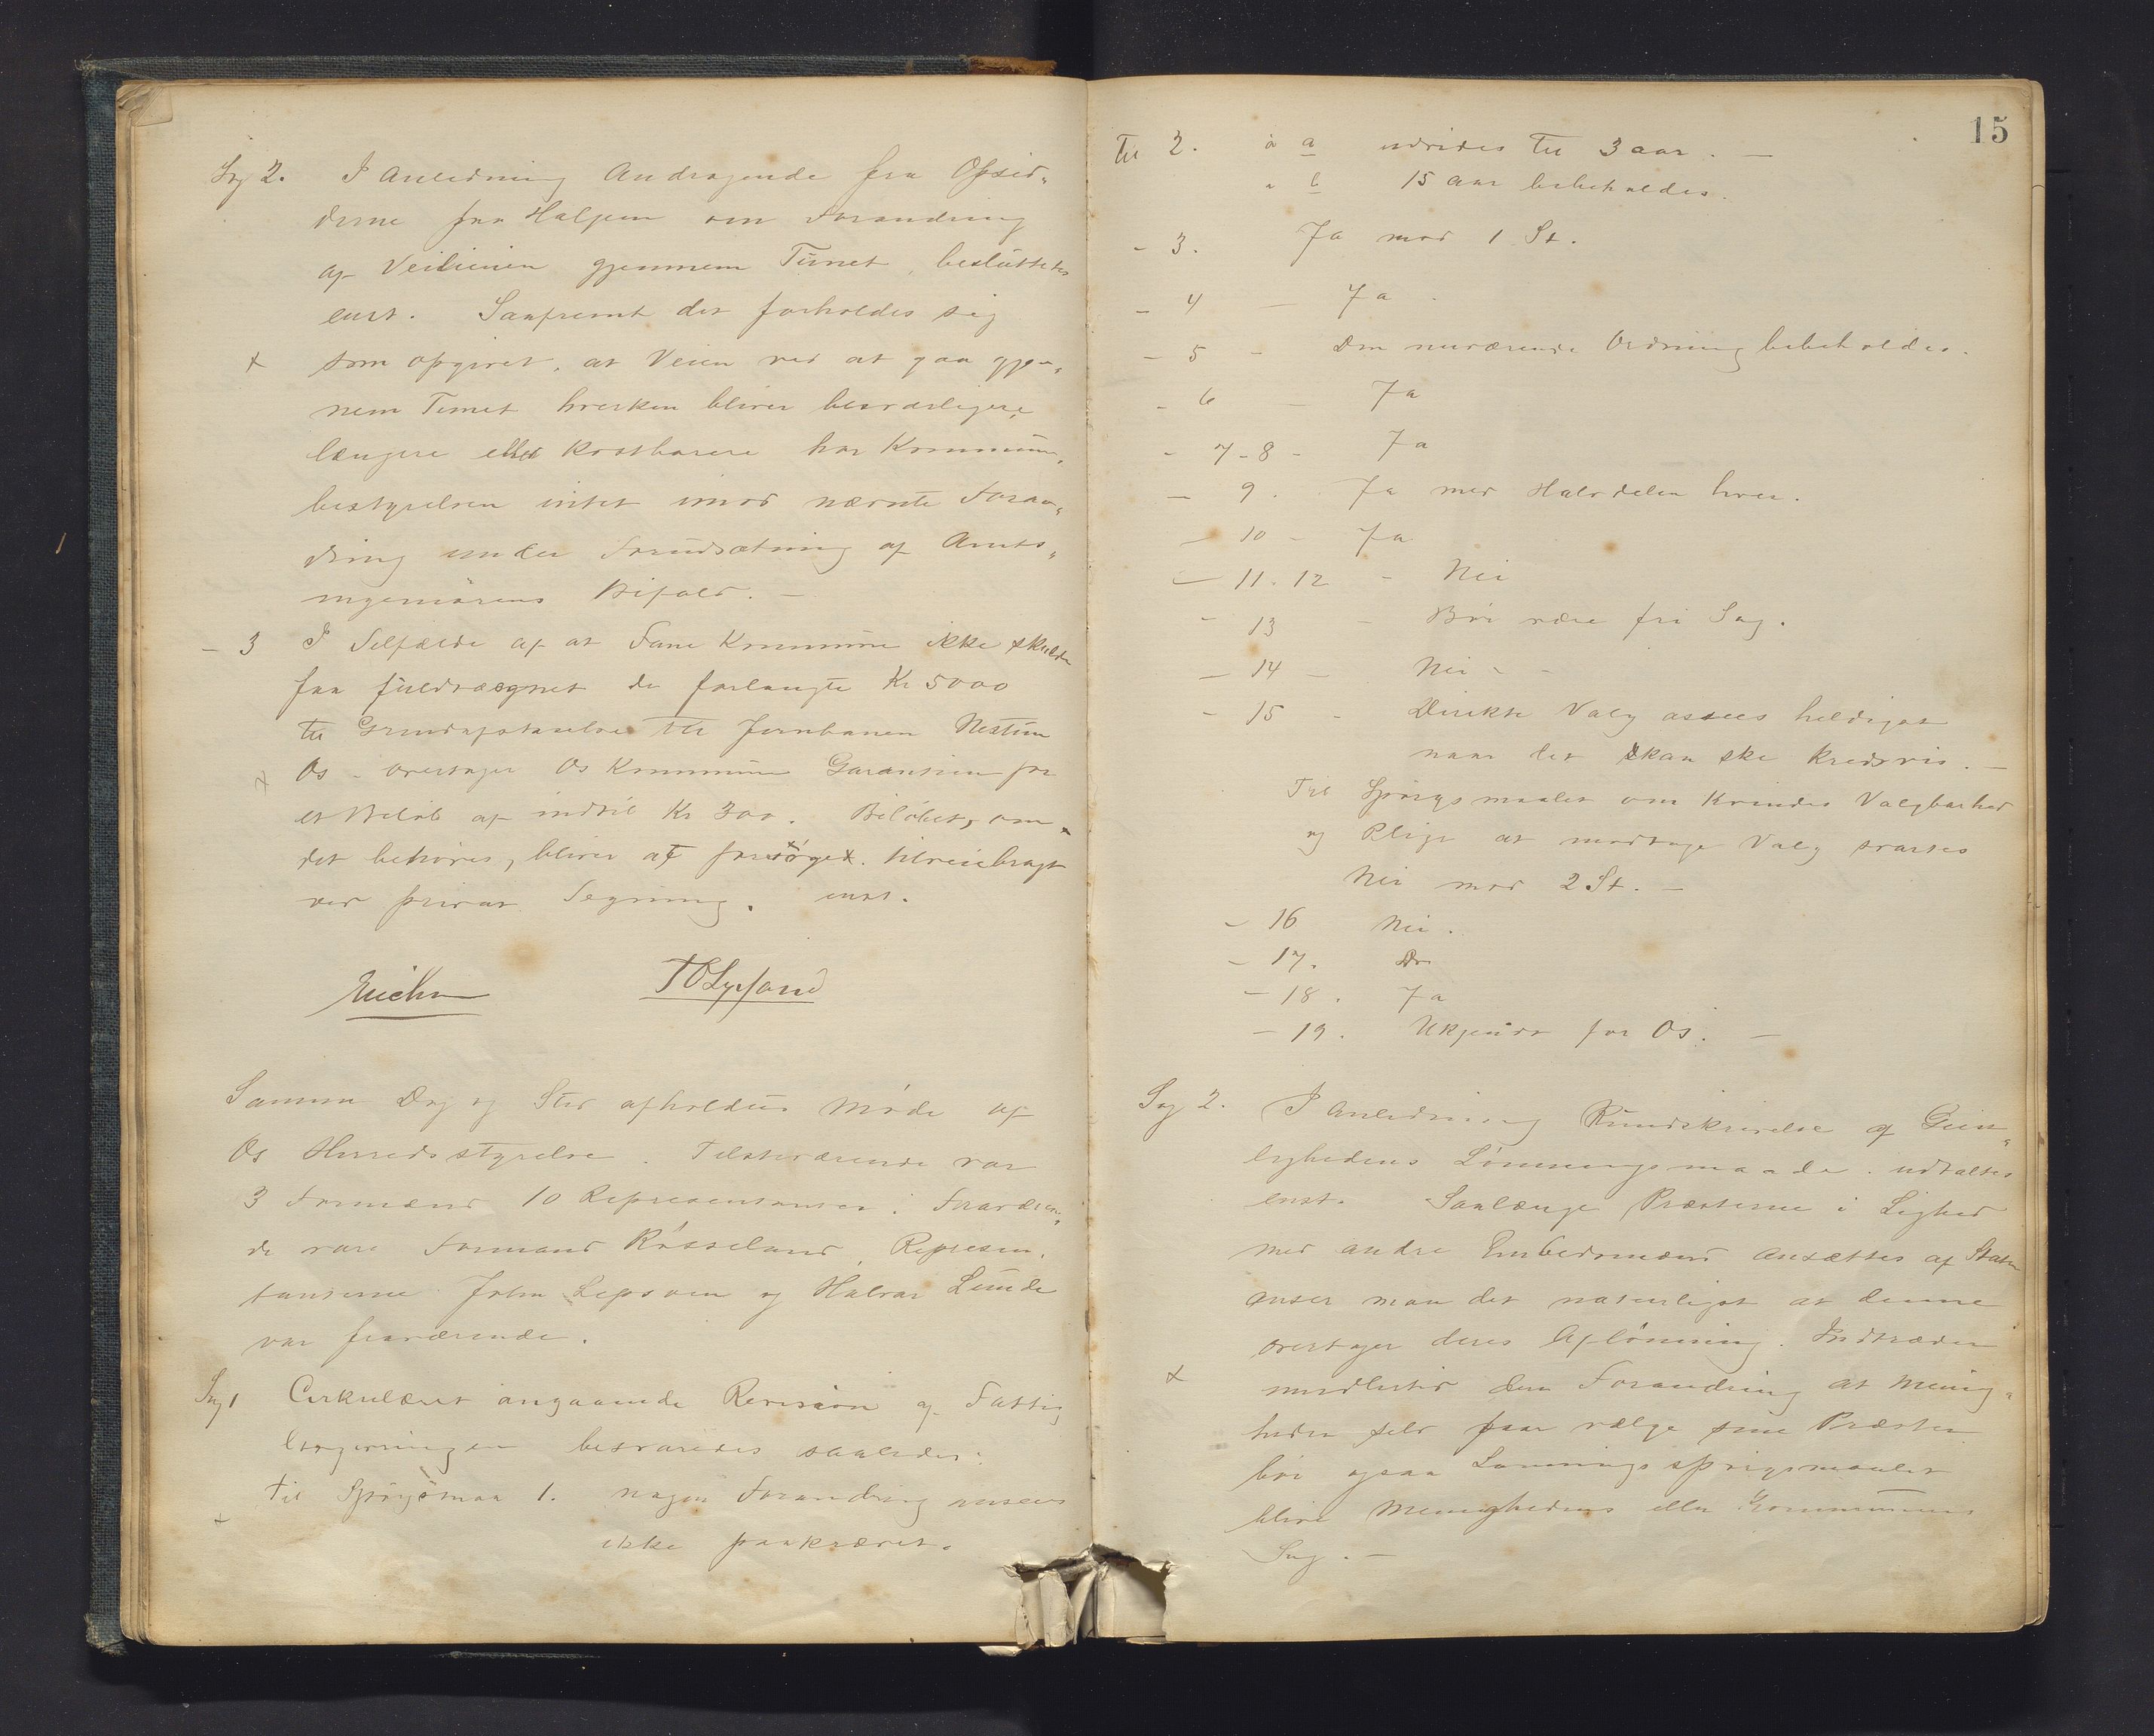 Sag 2. I Anledning Andragende fra Opsid„
derne paa Halgem om Forandring
af Veilinien gjennem Tunet, besluttedes
enst. Saafremt det forholdes sig
x som opgivet, at Veien ved at gaa gjen„
nem Tunet hverken bliver besværligere,
længere eller kostbarere har Kommune„
bestyrelsen intet imod nævnte Foran„
dring under Forudsætning af Amts„
ingeniørens Bifald. —
— 3 I Tilfælde af at Fane Kommune ikke skulde
faa fuldtægnet de forlangte Kr 5000
til Grundafstaaelse til Jernbanen Nestun
x Os - overtager Os Kommune Garantien for
et Beløb af indtil Kr 300. Beløbet, om
det behøves, bliver at forsøgt tilveiebragt
ved privat Tegning. enst.
T O Lysland
Samme Dag og Sted afholdtes Møde af
Os Herredsstyrelse. Tilstedværende var
3 Formænd 10 Repræsentanter. Fraværen„
de vare Formand Røsseland, Repræsen„
tanterne John Lepsøen og Halvar Lunde
var fraværende.
Sag 1 Cirkulæret angaaende Revision af Fattig
lovgivningen besvaredes saaledes:
x Til Spørgsmaa 1. nogen Forandring ansees
ikke paakrævet.
15
Til 2. a a udvides til 3 aar. —
" b 15 aar bibeholdes.
— 3. Ja mod 1 St.
— 4 — Ja.
— 5 — Den nuværende Ordning bibeholdes.
— 6 — Ja
— 7-8 — Ja
— 9. Ja med Halvdelen hver.
— 10 — Ja
— 11. 12 — Nei
— 13 — Bør være fri Sag.
— 14 — Nei - -
— 15 - Direkte Valg ansees heldigst
naar det kan ske kredsvis. —
Til Spørgsmaalet om Kvinders Valgbarhed
og Pligt at modtage Valg svartes
Nei mod 2 St. —
— 16 Nei.
— 17. Do
— 18. Ja
— 19. Ukjendt for Os. —
Sag 2. I Anledning Rundskrivelse af Geist„
lighedens Lønningsmaade. udtaltes
enst. Saalænge Præsterne i Lighed
med andre Embedsmænd ansættes af Staten
anser man det naturligst at denne
overtager deres Aflønning. Indtræder
x imidlertid den Forandring at Menig„
heden selv faar vælge sine Præster
bør ogsaa Lønnings spørgsmaalet
blive Menighedens eller Kommunens
Sag. —